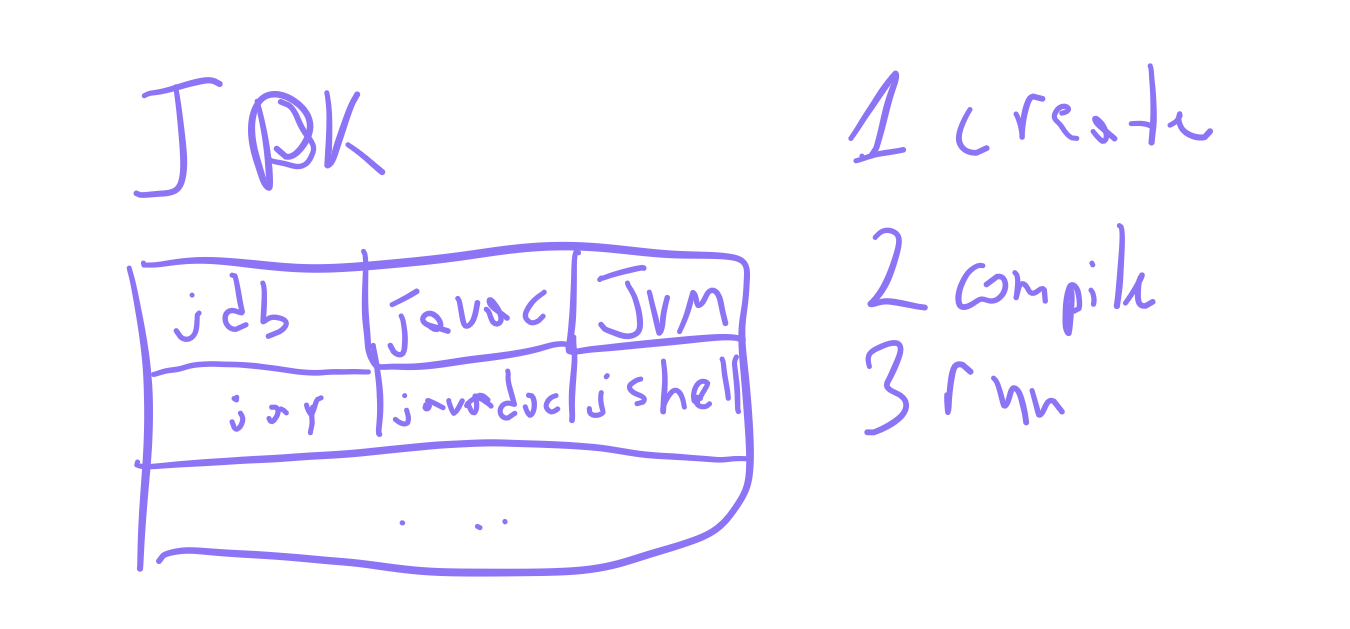 JDK
jdb javac JVM
jar javadoc jshell
...
1 create
2 compile
3 run